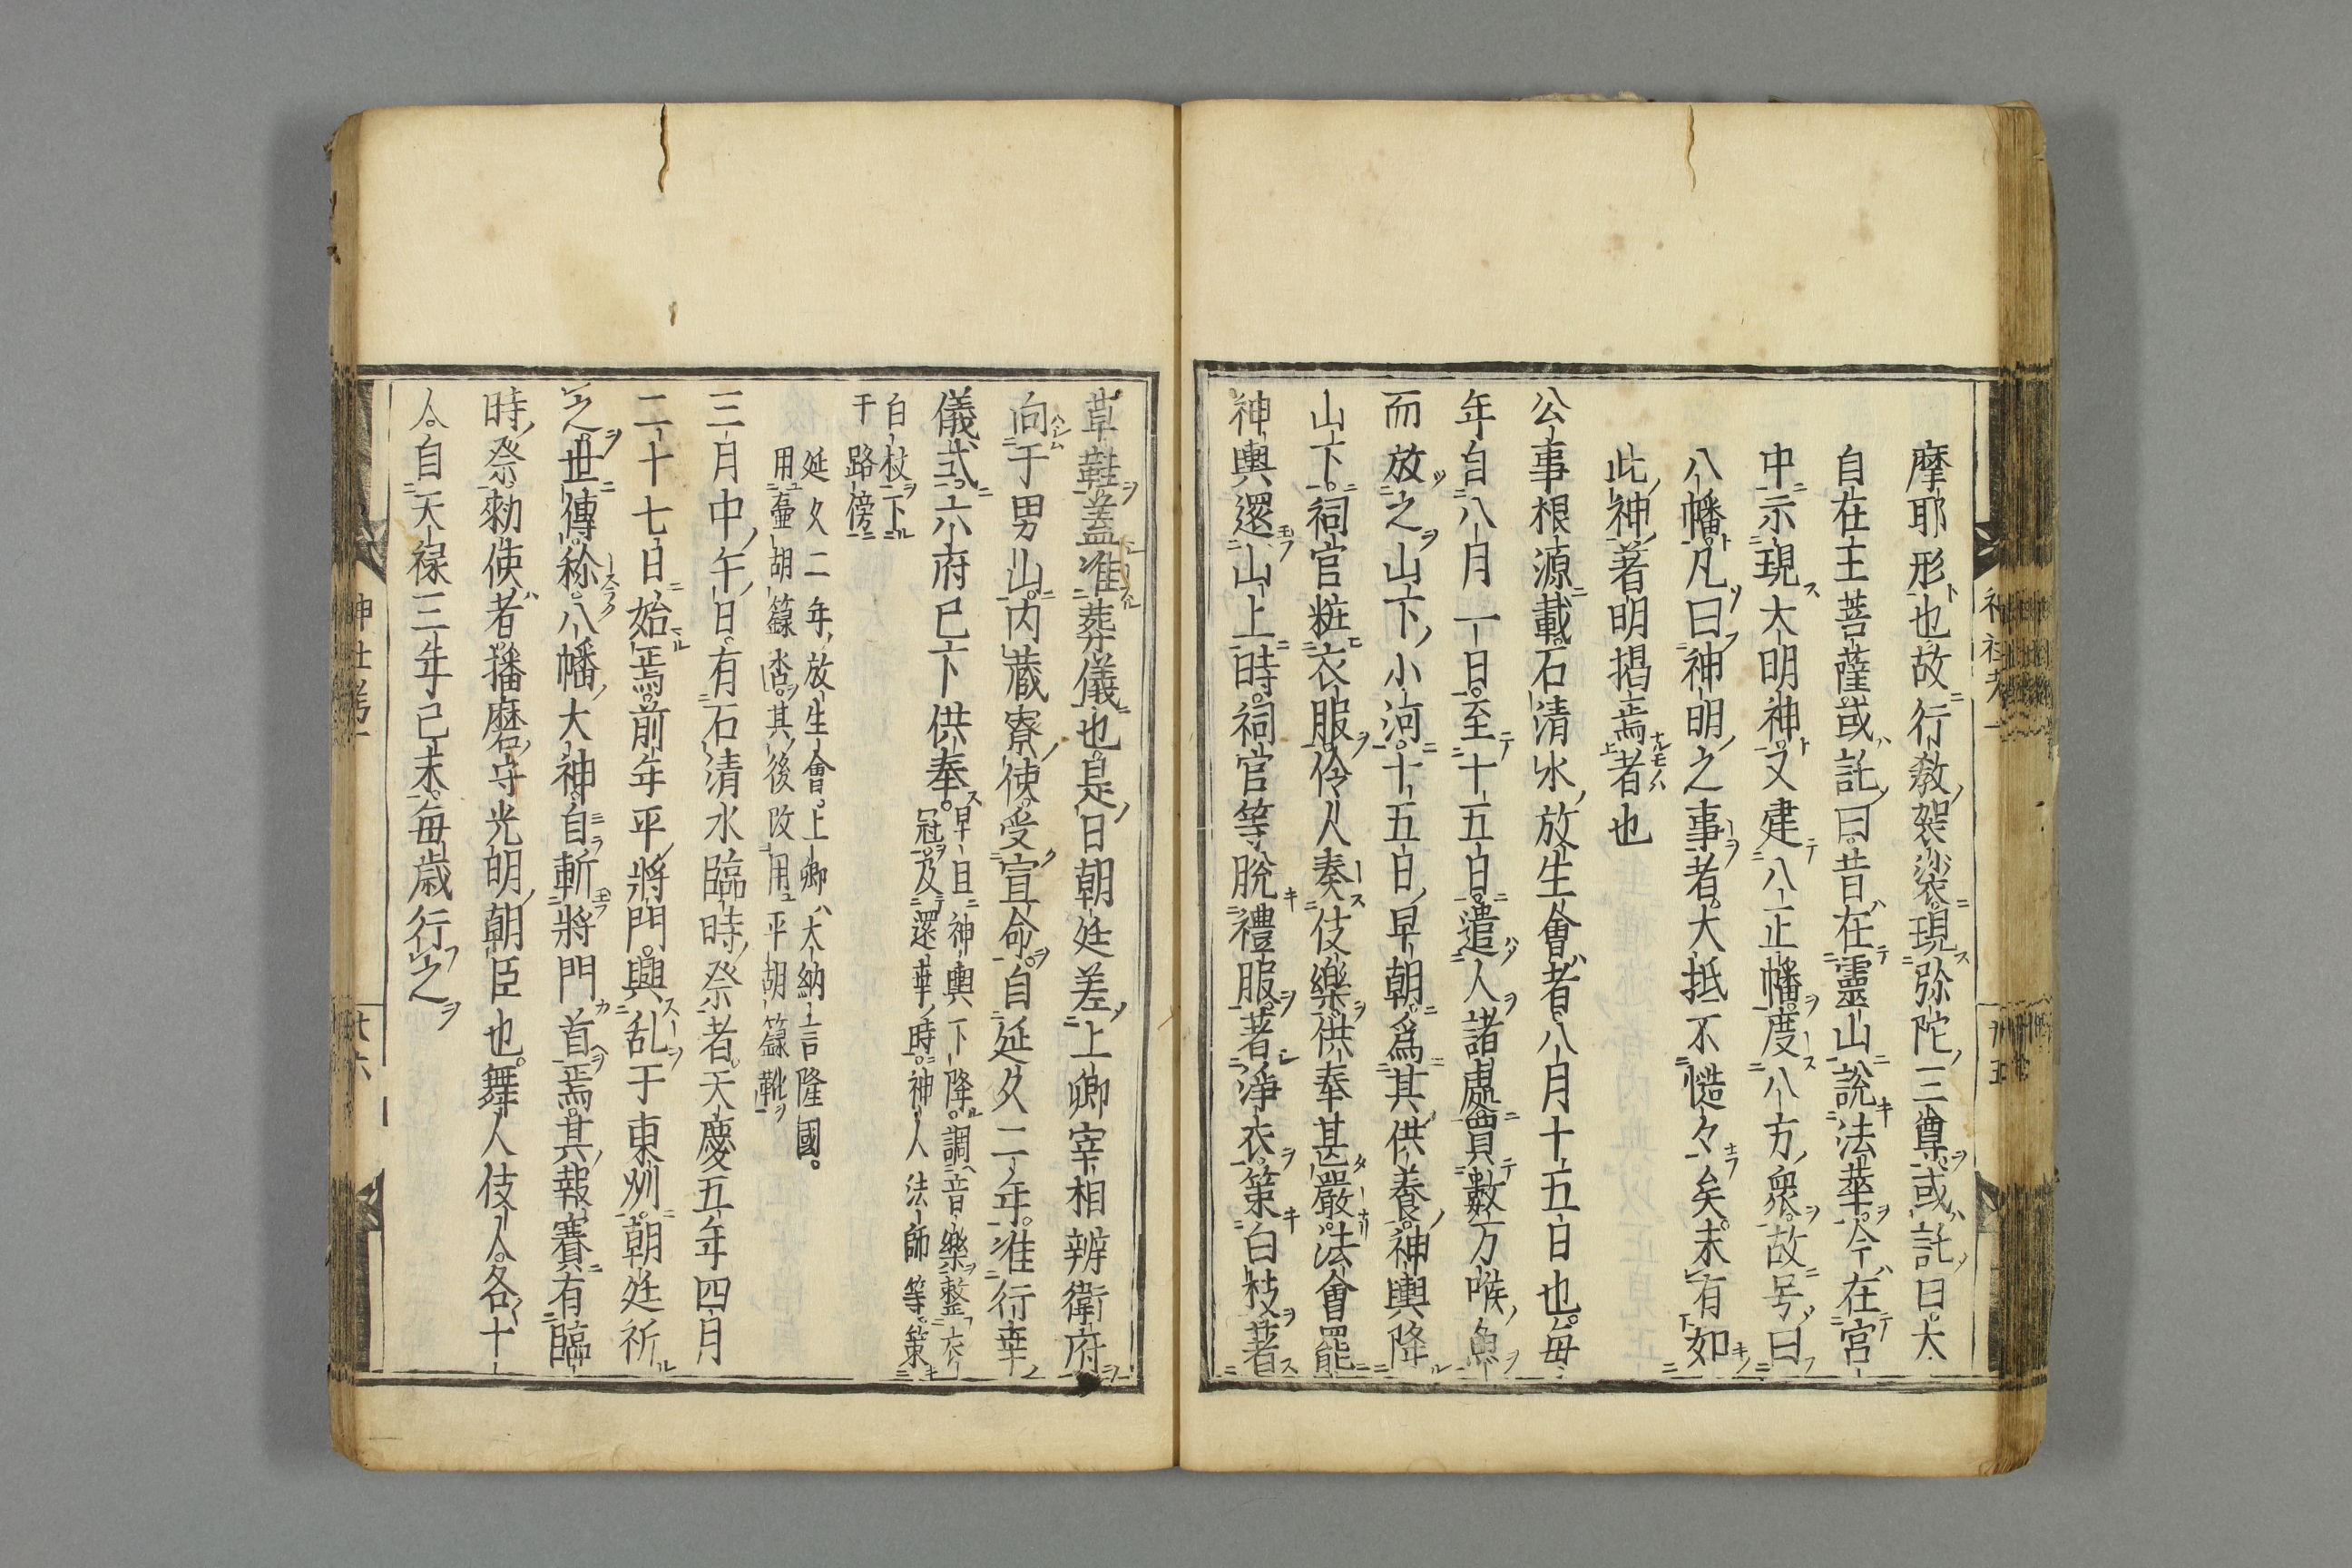 摩耶形也故行教袈裟現弥陀三尊或託曰大
自在王菩薩或託曰昔在靈山說法華今在宮
中示現大明神又建八正幡度八方衆故号曰
八幡凡曰神明之事者大抵不慥々矣未有如
此神著明掲焉者也
公事根源載石清水放生會者八月十五日也毎
年自八月一日至十五日遣人諸處買數万喉魚
而放之山下小河十五日早朝爲其供養神輿降
山下祠官粧衣服伶人奏伎樂供奉甚嚴法會罷
神輿還山上時祠官等脫禮服著淨衣策白杖著
草鞋蓋准葬儀也是日朝廷差上卿宰相辨衛府
向于男山内蔵寮使受宣命自延久二年准行幸
儀式六府已下供奉
早旦神輿下降調音樂整衣
冠及還幸時神人法師等策
白杖下
于路傍
延久二年放生會上卿大納言隆國
用壷胡籙㳫其後改用平胡籙靴
三月中午日有石清水臨時祭者天慶五年四月
二十七日始焉前年平將門興乱于東州朝廷祈
之世傳称八幡大神自斬將門首焉其報賽有臨
時祭勅使者播磨守光明朝臣也舞人伎人各十
人自天禄三年己未毎歳行之
神社考一
神社考一
廿五
廿六